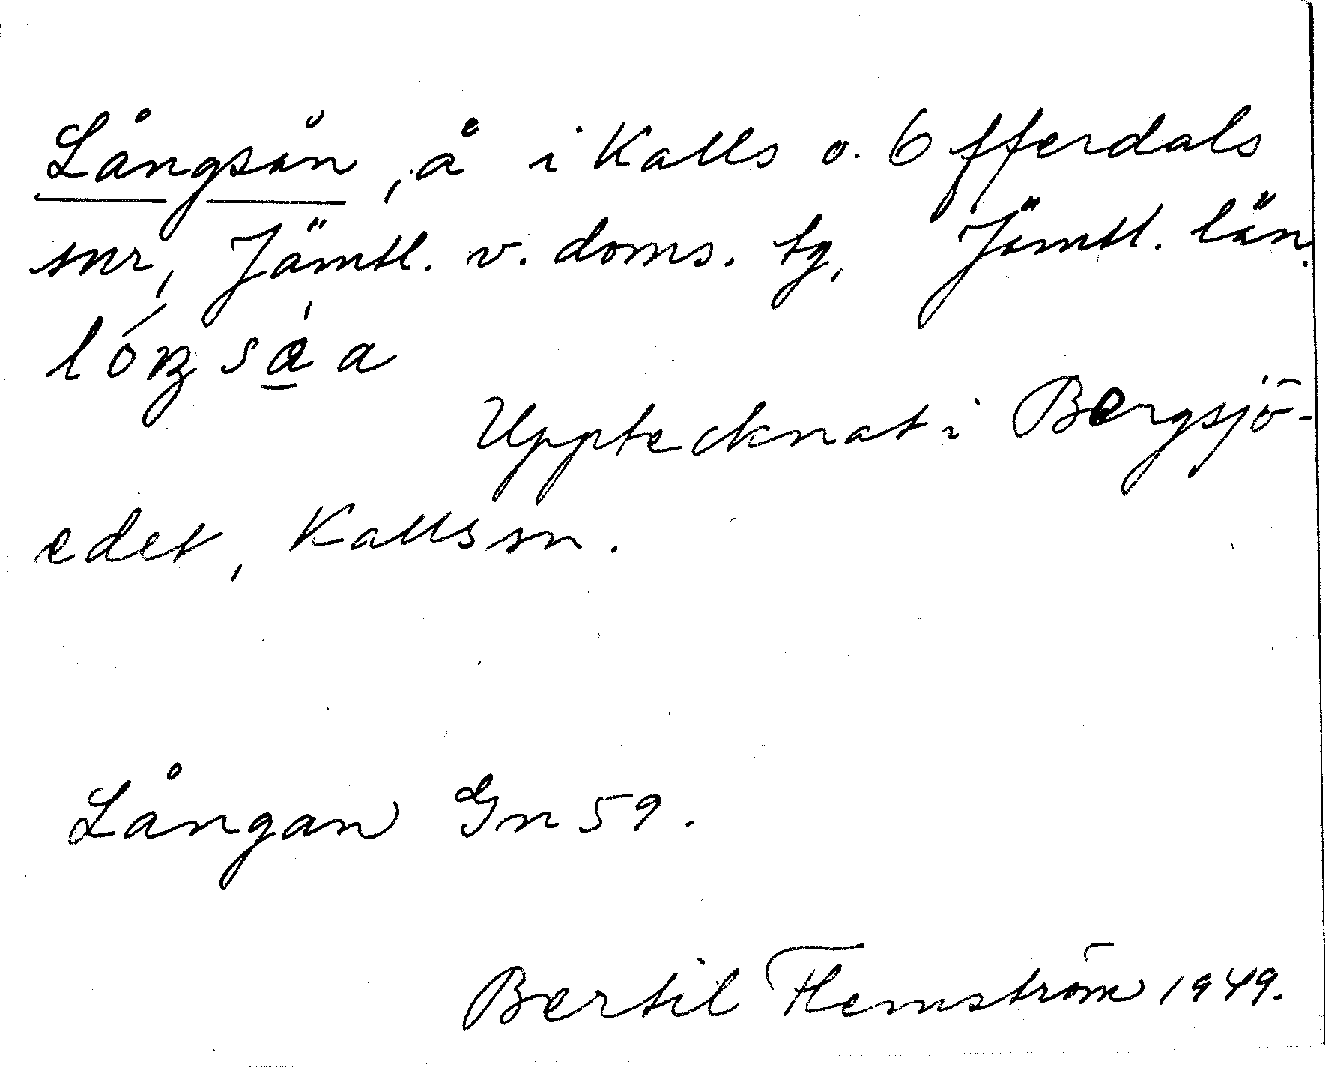 Långsån, å i Kalls o. Offerdals
snr, Jämtl. v. doms. tg, Jämtl. län.
Upptecknat i Bergsjö-
edet, Kalls sn.
Långan Gn 59.
Bertil Flemström 1949.